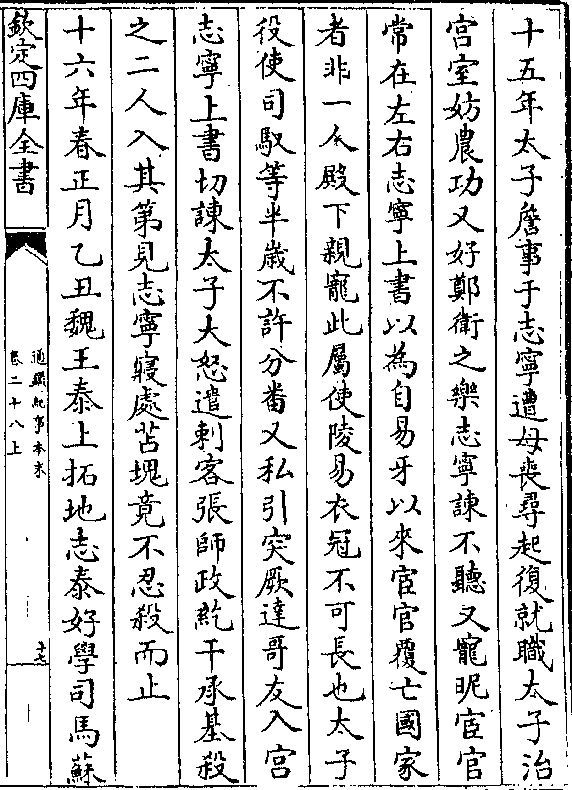 十五年太子詹事于志寧遭母喪尋起復就職太子治
宮室妨農功又好鄭衛之樂志寧諫不聽又寵昵宦官
常在左右志寧上書以為自易牙以來宦官覆亡國家
者非一今殿下親寵此屬使陵易衣冠不可長也太子
役使司馭等半嵗不許分番又私引突厥達哥友入宮
志寧上書切諫太子大怒遣刺客張師政紇干承基殺
之二人入其第見志寧寢處苫塊竟不忍殺而止
十六年春正月乙丑魏王泰上括地志泰好學司馬蘇
欽定四庫全書
通鑑紀事本末
卷二十八上
十七